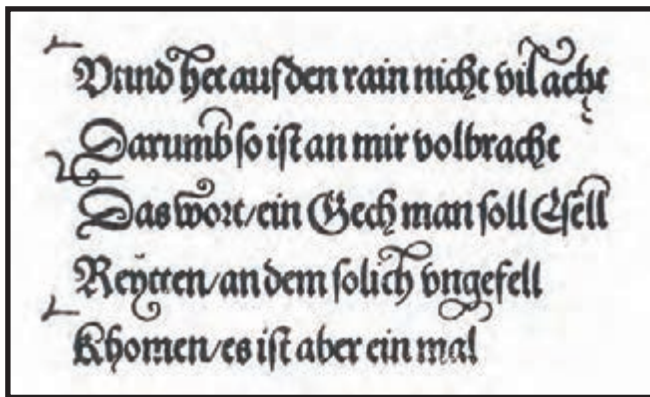 Vnnd het auf den rain nicht vil acht
Darumb so ist an mir volbracht
Das wort/ein Gech man soll Esell
Reytten/an dem solich vngefell
Khomen/es ist aber ein mal